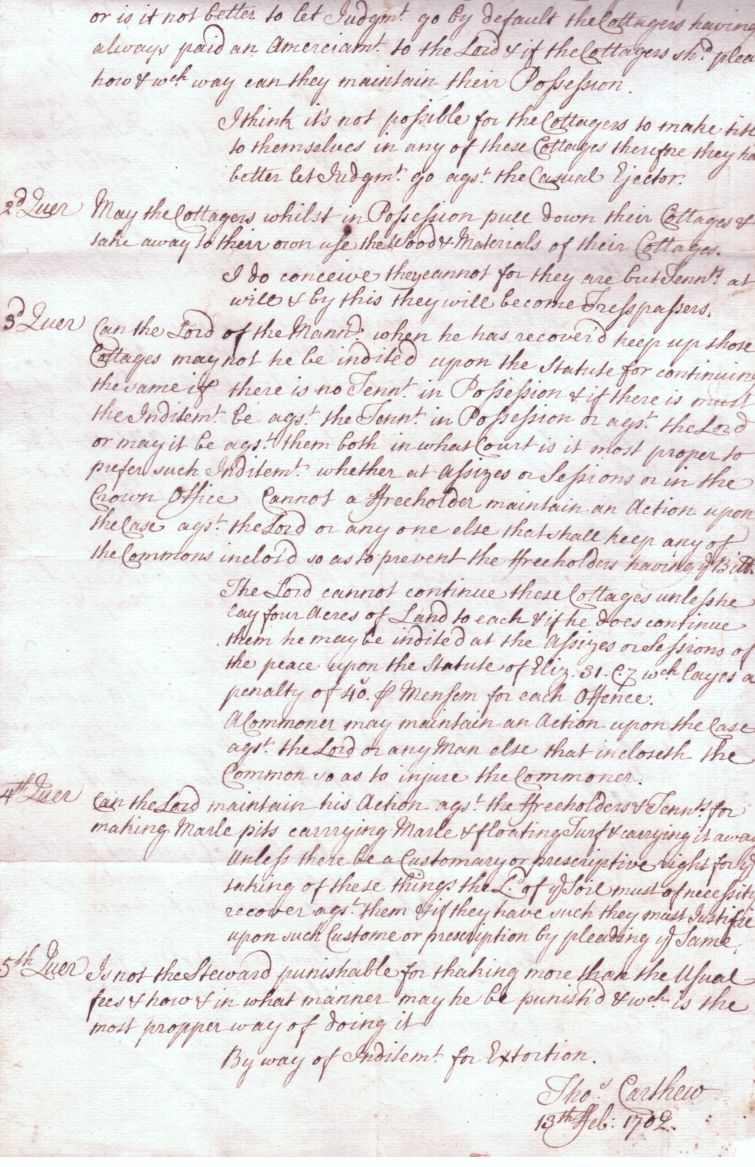 or is it not better to let Judgmt. go by default the Cottagers having
always paid an Amerciamt. to the Lord & if the Cottagers shd. plea
how & wch way can they maintain their Possession.
I think it's not possible for the Cottagers to make titl
to themselves in any of these Cottages therefore they ha
better let Judgmt. go agst. the Casual Ejector.
2d Quer May the Cottagers whilst in Possession pull down their Cottages &
take away to their own use the Wood & Materials of their Cottages.
I do conceive they cannot for they are but Tennts. at
will & by this they will become Tresspassers.
3d Quer Can the Lord of the Mannr. when he has recover'd keep up those
Cottages may not he be indited upon the Statute for continuing
the same if there is no Tennt. in Possession & if there is must
the Inditemt. be agst. the Tennt. in Possession or agst. the Lord
or may it be agst. them both in what Court is it most proper to
prefer such Inditemt. whether at Assizes or Sessions or in the
Crown Office Cannot a ffreeholder maintain an Action upon
the Case agst. the Lord or any one else that shall keep any of
the Commons inclos'd so as to prevent the ffreeholders having ye
The Lord cannot continue these Cottages unless he
lay four Acres of Land to each & if he does continue
them he may be indited at the Assizes or Sessions of
the peace upon the Statute of Eliz. 31. C7 wch layes a
penalty of 40s. p Mensem for each Offence.
A Commoner may maintain an Action upon the Case
agst. the Lord or any Man else that incloseth the
Common so as to injure the Commoner.
4th Quer Can the Lord maintain his Action agst. the ffreeholders & Tennts. for
making Marle pits carrrying Marle & floating Turf & carrying it away
Unless there be a Customary or prescriptive right for ye
taking of these things the L. of ye Soie must of necessity
recover agst. them & if they have such they must Justifie
upon such Custome or prescription by pleading ye Same.
5th Quer Is not the Steward punishable for thaking more than the Usual
fees & how & in what manner may he be punish'd & wch is the
most propper way of doing it
By way of Inditemt. for Extortion.
Thos. Carthew
13th ffeb: 1702.